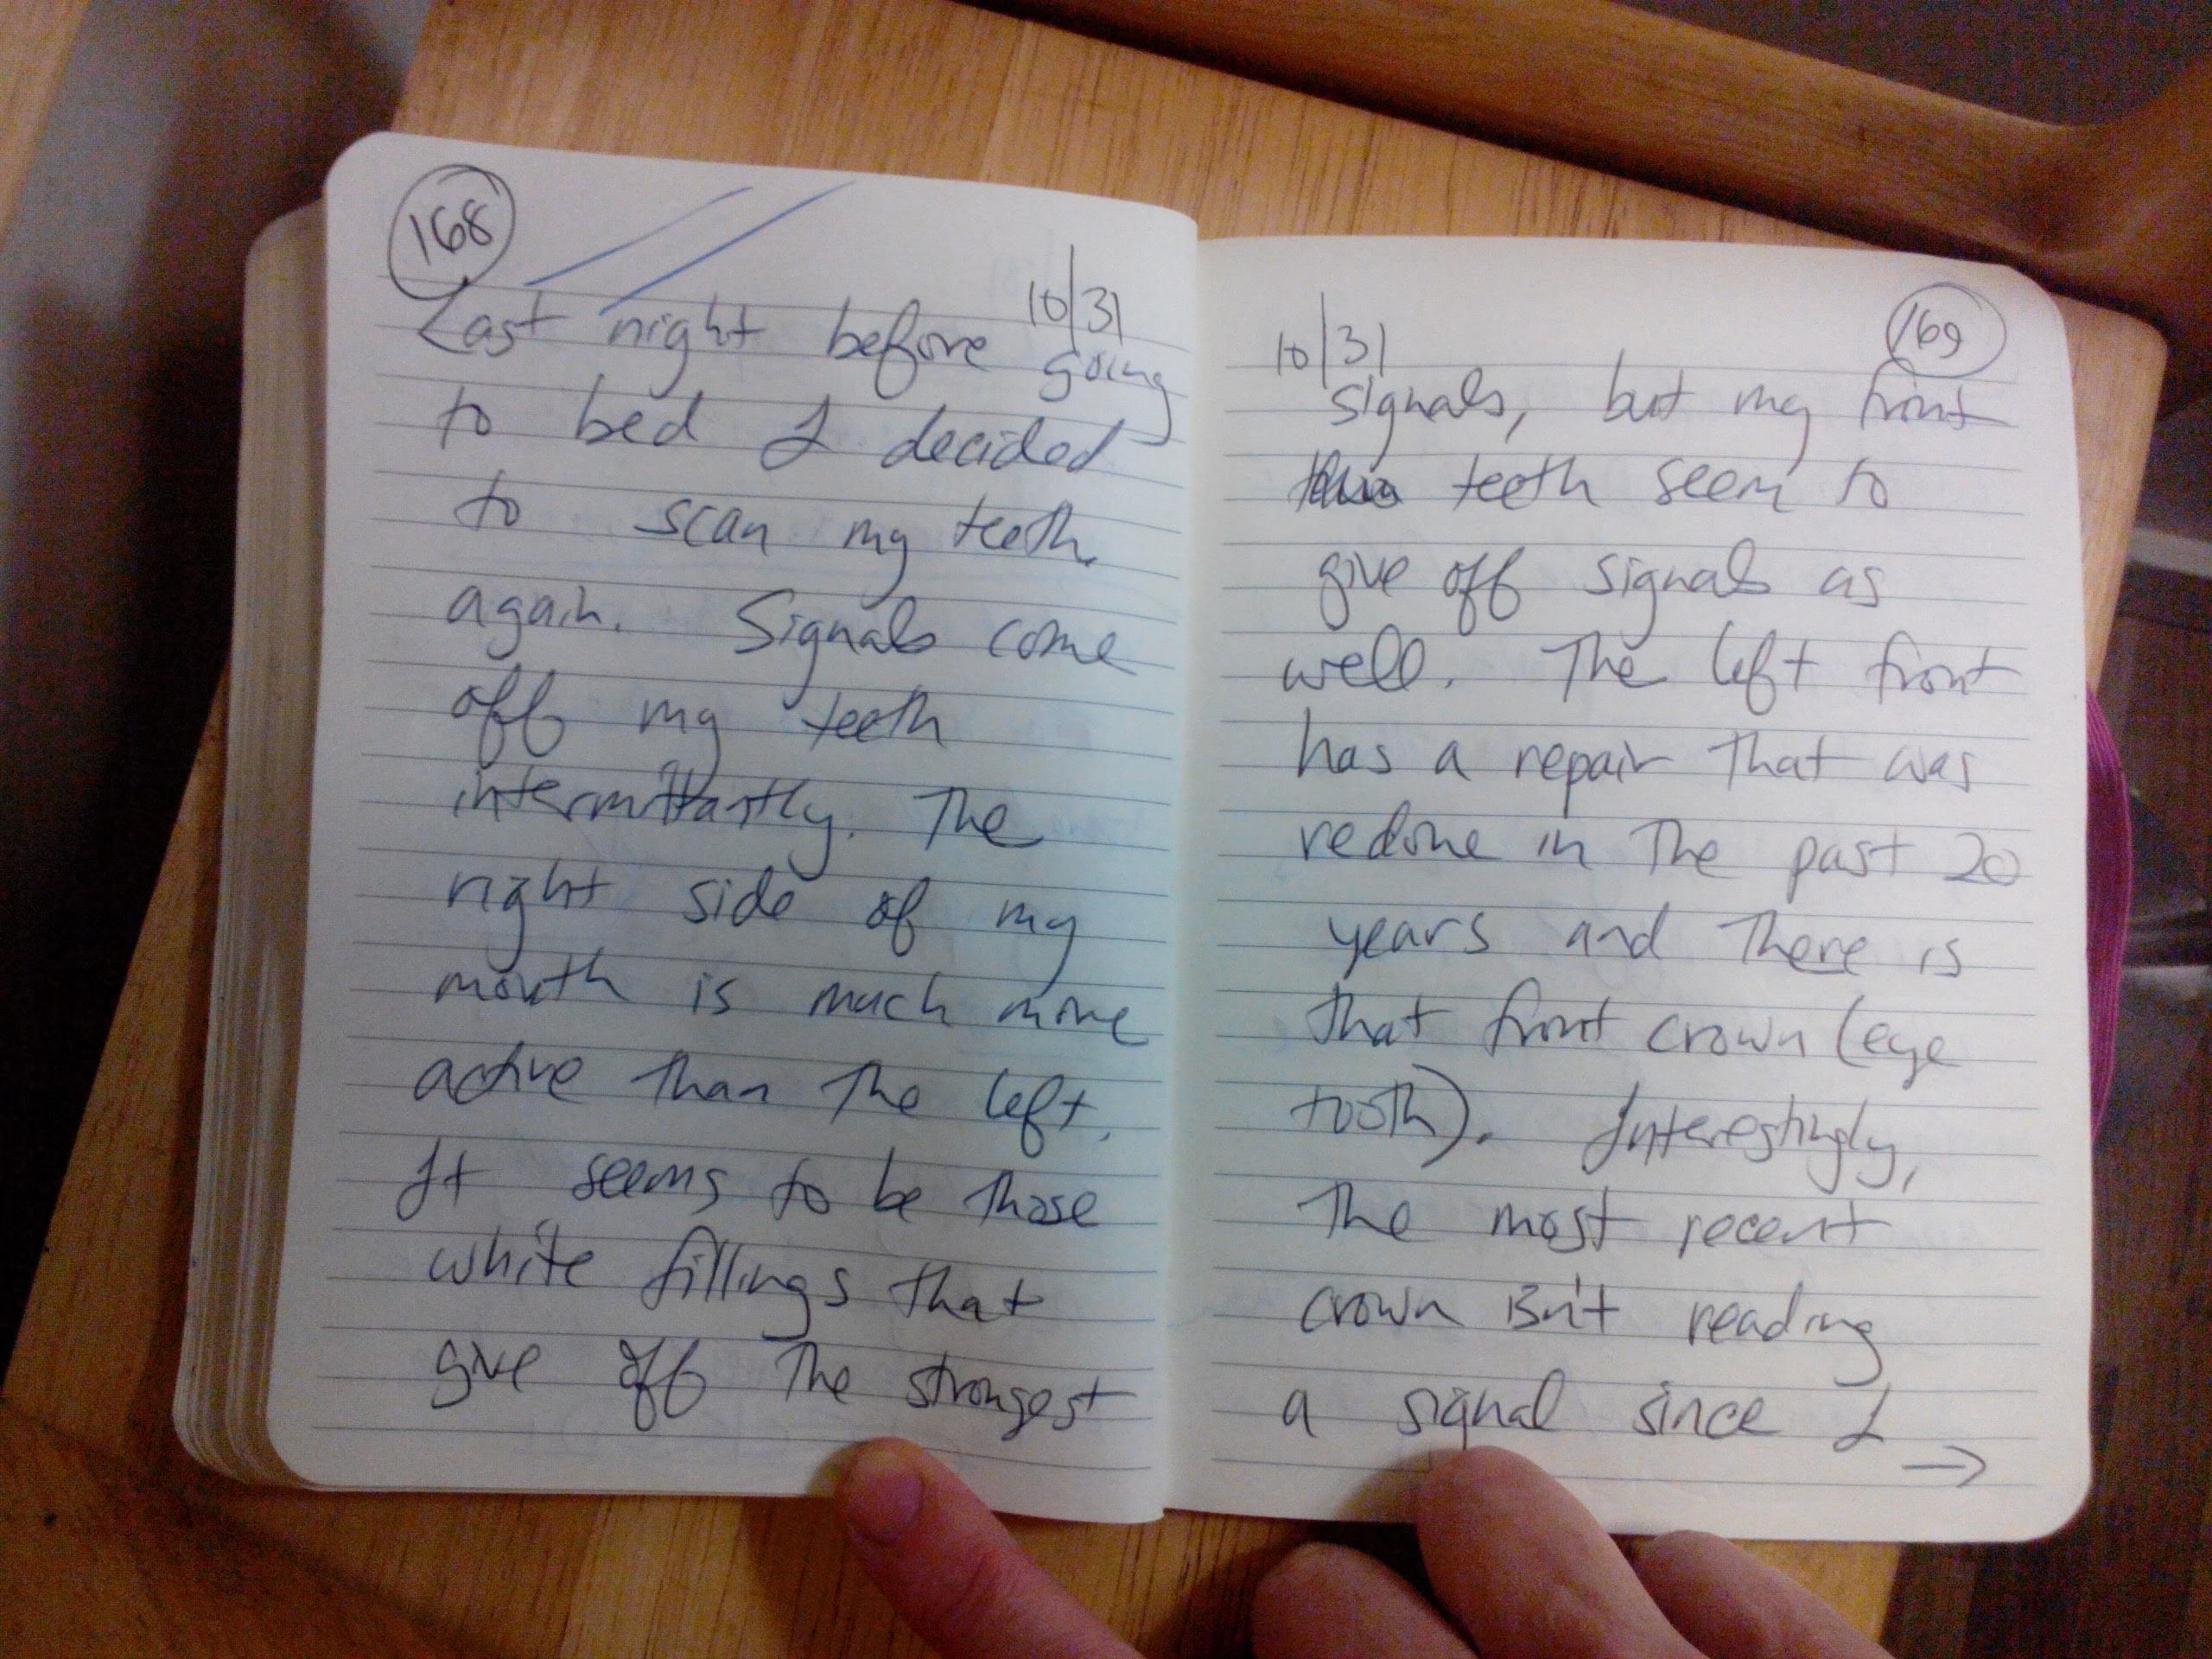 168
10/31
Last night before going
to bed I decided
to scan my teeth
again. Signals come
off my teeth
intermittantly. The
right side of my
mouth is much more
active than the left.
It seems to be those
white fillings that
give off the strongest
169
10/31
signals, but my front
teeth seem to
give off signals as
well. The left front
has a repair that was
redone in the past 20
years and there is
that front crown (eye
tooth). Interestingly,
the most recent
crown isn't reading
a signal since I
→